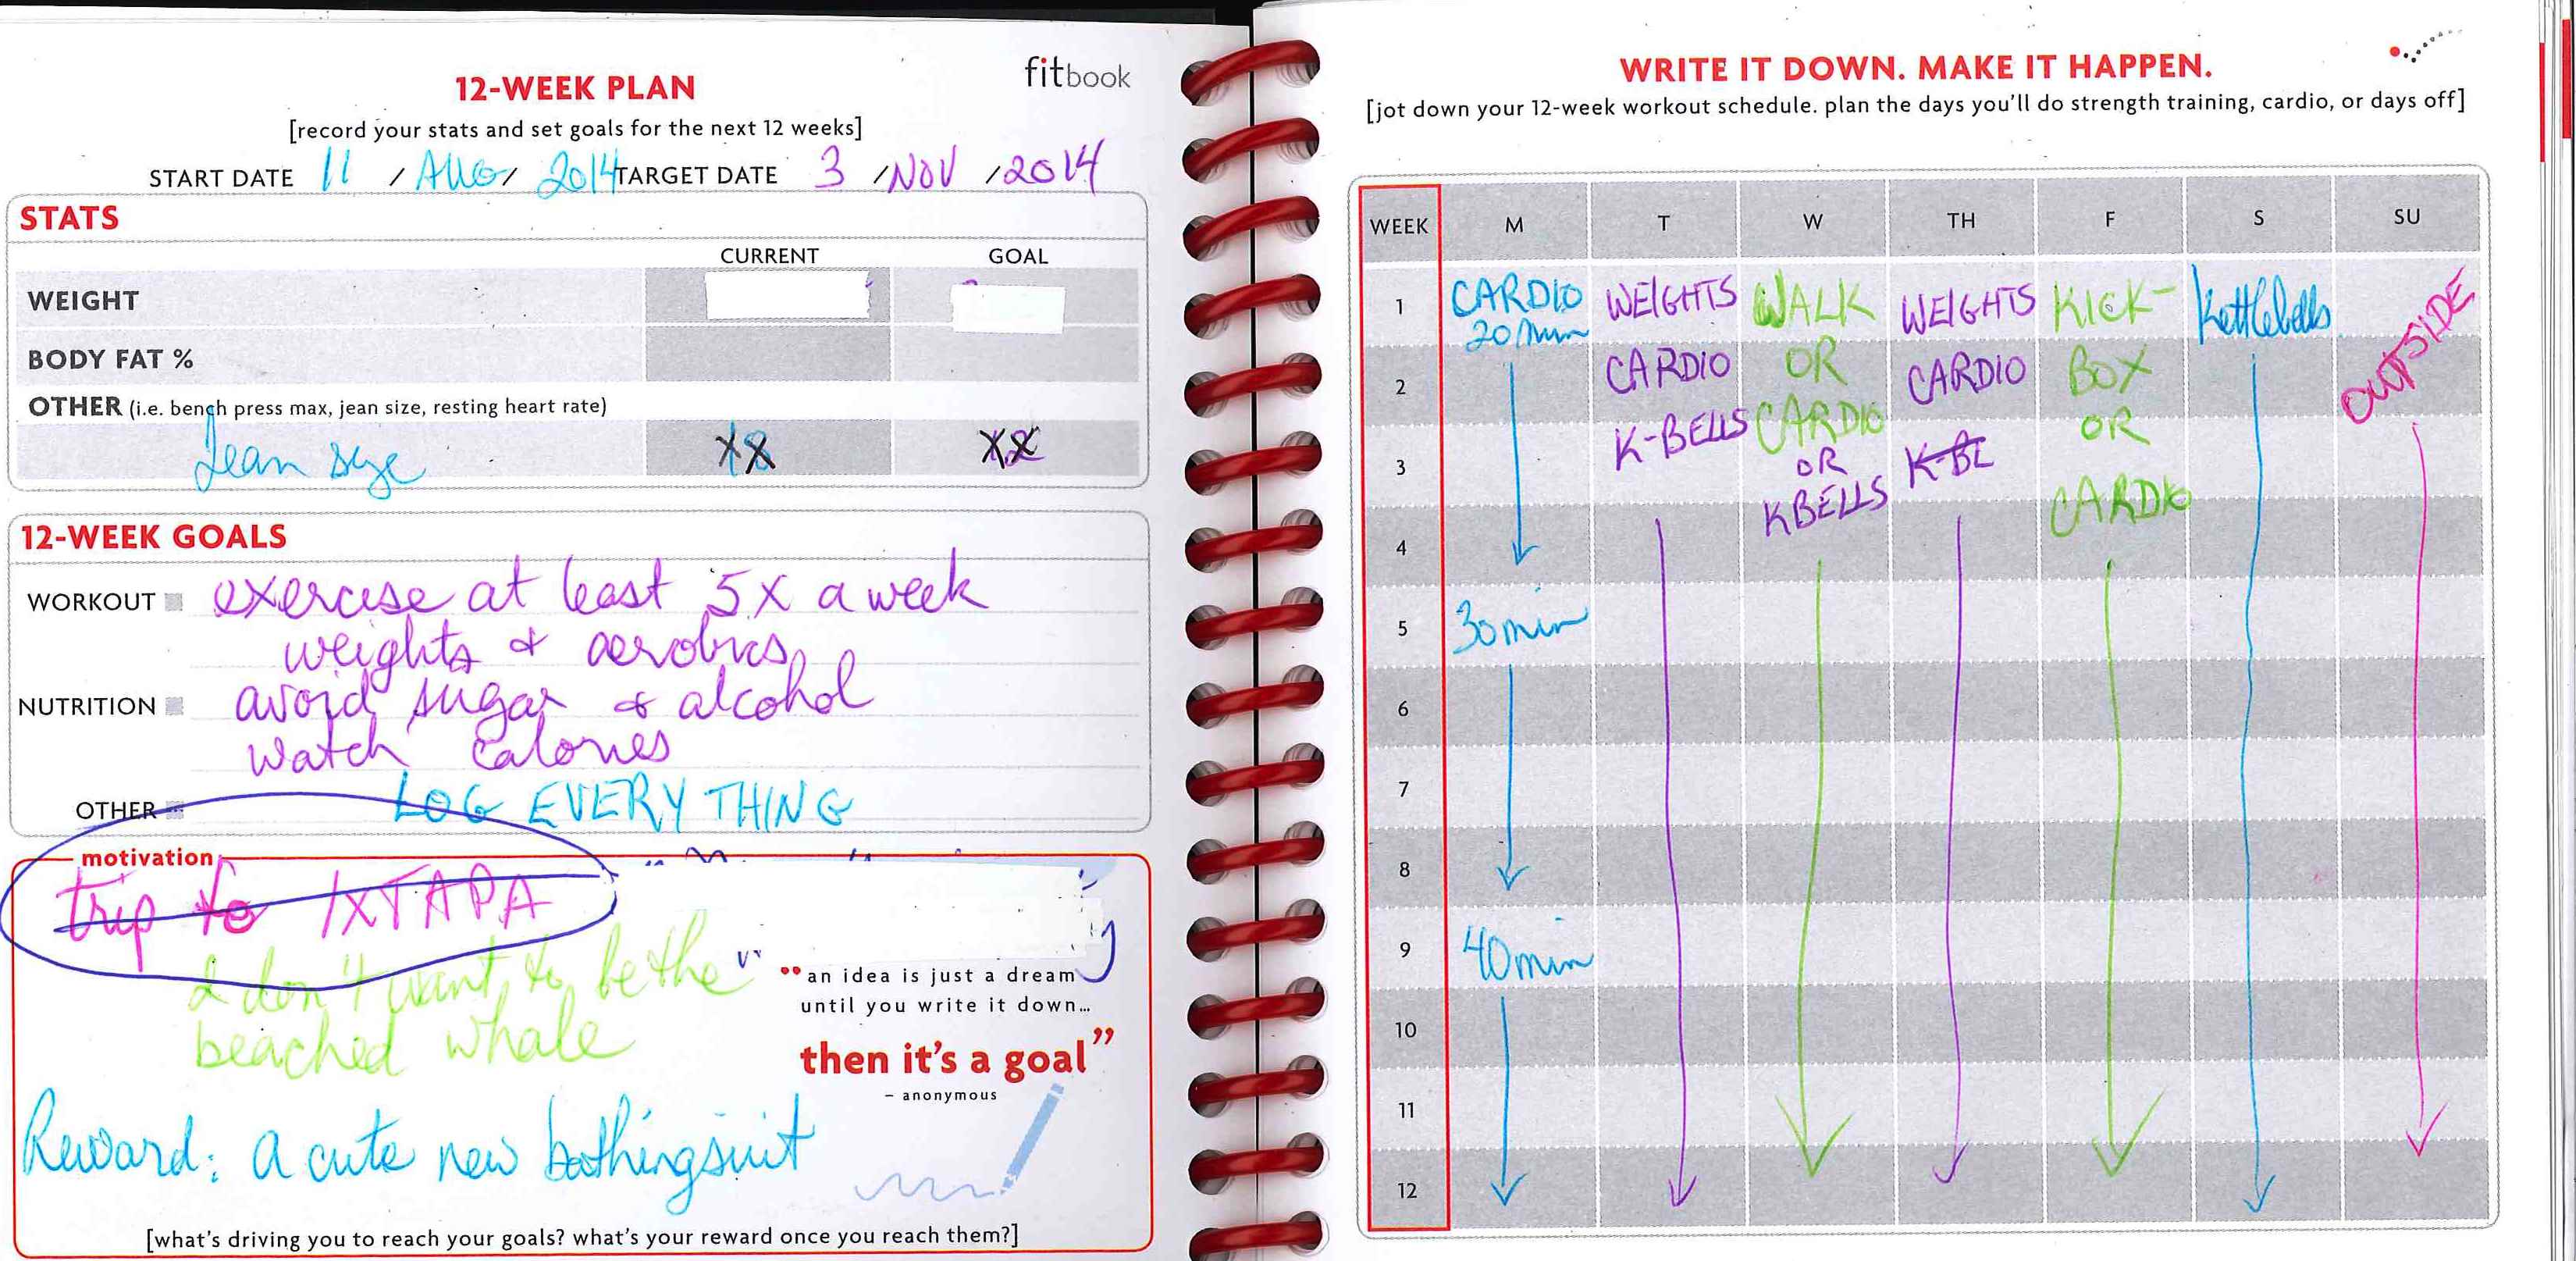 12-WEEK PLAN
fitbook
[record your stats and set goals for the next 12 weeks]
START DATE 11 / AUG / 2014 TARGET DATE 3 / NOV / 2014
STATS
CURRENT GOAL
WEIGHT
BODY FAT %
OTHER (i.e. bench press max, jean size, resting heart rate)
Jean size
12-WEEK GOALS
WORKOUT exercise at least 5x a week
weights & aerobics
NUTRITION avoid sugar & alcohol
watch calories
OTHER LOG EVERYTHING
motivation
trip to IXTAPA
I don't want to be the
beached whale
"an idea is just a dream
until you write it down...
then it's a goal"
– anonymous
Reward: A cute new bathingsuit
[what's driving you to reach your goals? what's your reward once you reach them?]
WRITE IT DOWN. MAKE IT HAPPEN.
[jot down your 12-week workout schedule. plan the days you'll do strength training, cardio, or days off]
WEEK M T W TH F S SU
1 CARDIO WEIGHTS WALK WEIGHTS KICK- Kettlebells OUTSIDE
20 min
2 CARDIO OR CARDIO BOX
K-BELLS CARDIO OR
3 OR K-BE
KBELLS CARDIO
4
5 30 min
6
7
8
9 40 min
10
11
12